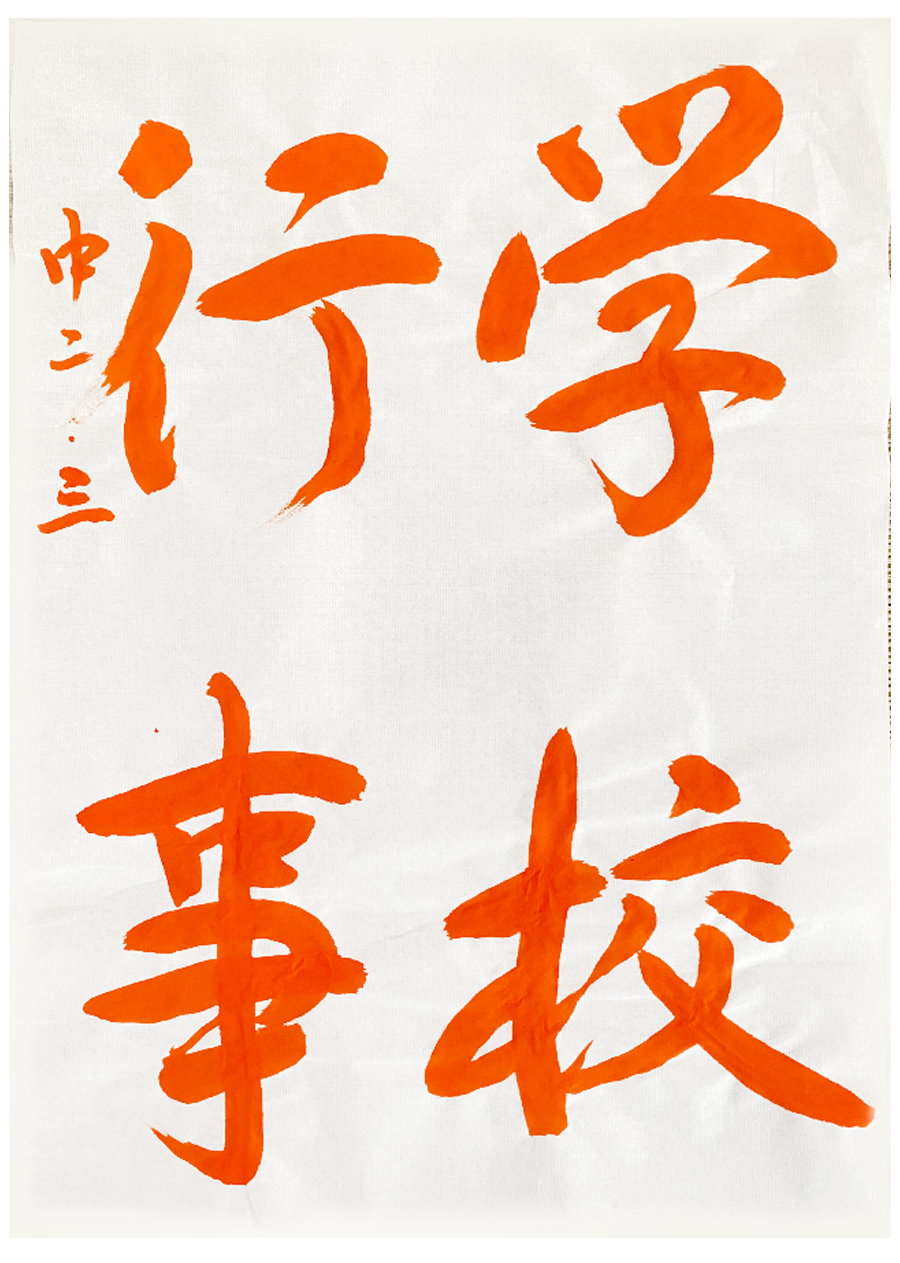 学校
行事
中二・三